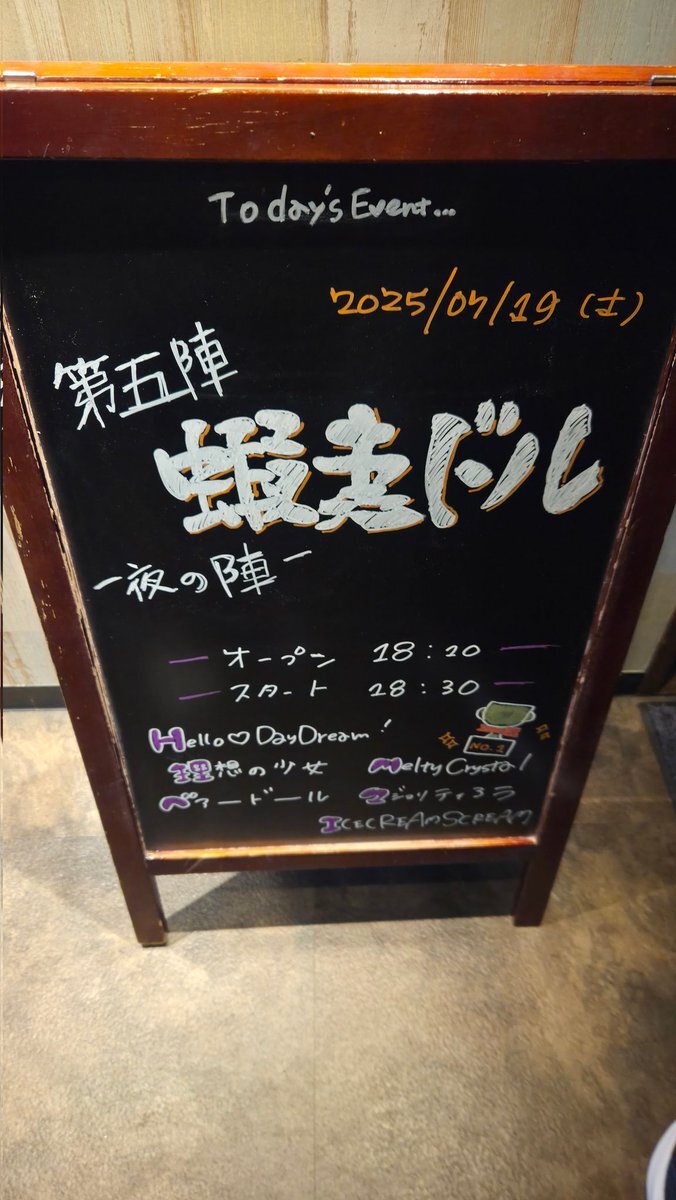 Today's Event...
2025/07/19 (土)
第五陣
蝦夷ドル
-夜の陣-
オープン 18:10
スタート 18:30
Hello♡DayDream!
NO.1
理想の少女 MeltyCrystal
ベアードール マジョリティヨラ
ICECREAMSCREAM